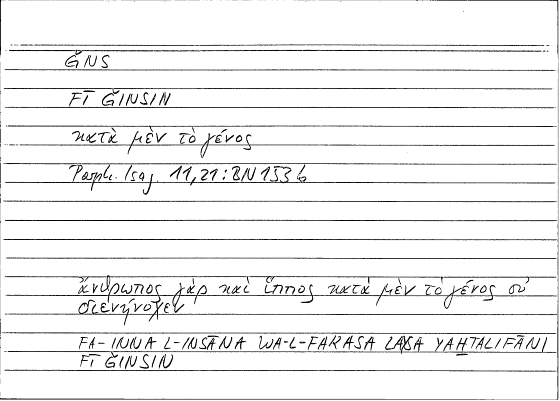 ǦNS
FĪ ǦINSIN
κατὰ μὲν τὸ γένος
Porph. Isag. 11,21: BN 153 b
ἄνθρωπος γὰρ καὶ ἵππος κατὰ μὲν τὸ γένος οὐ
διενήνοχεν
FA-INNA L-INSĀNA WA-L-FARASA LAYSA YAḪTALIFĀNI
FĪ ǦINSIN